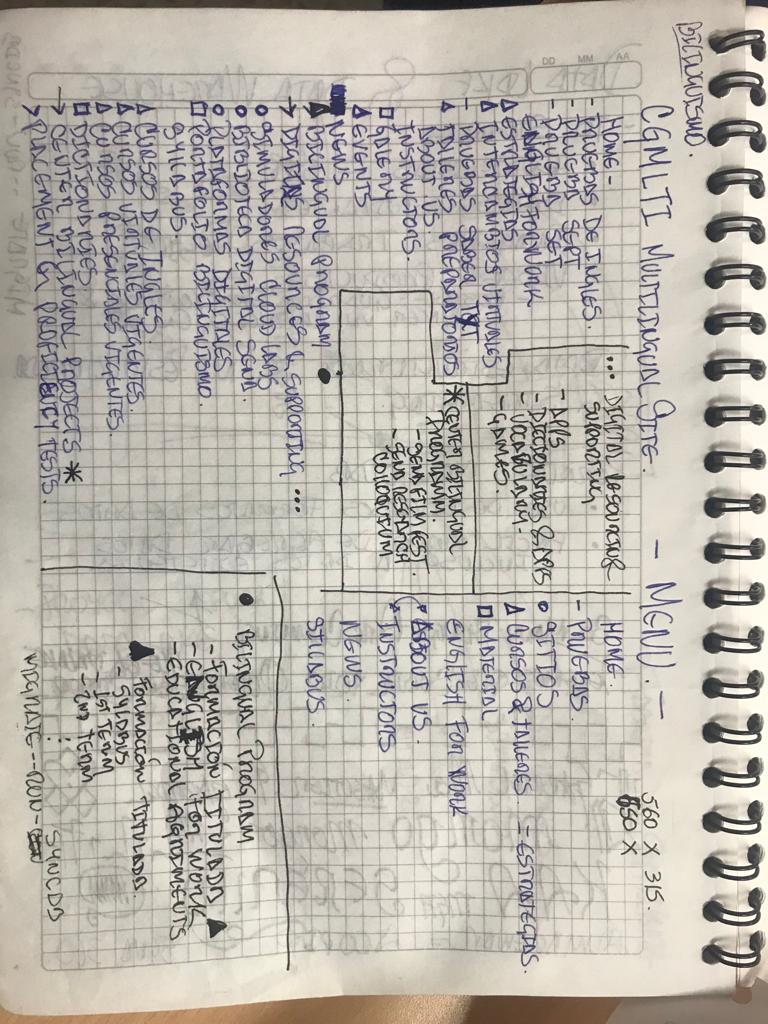 BILINGUISMO.
AA
MM
DD
CGMLTI MULTILINGUAL SITE. - MENU. -
560 X 315.
650 X
HOME -
- PRUEBAS DE INGLES.
- PRUEBA SEPT
- PRUEBA SET
ENGLISH FOR WORK
△ ESTRATEGIAS
△ INTERCAMBIOS VIRTUALES
- PRUEBAS SABER TYT
△ TALLERES PREPARATORIOS
ABOUT US.
INSTRUCTORS.
□ GALERY
△ EVENTS
NEWS
BILINGUAL PROGRAM ●
→ DIGITAL RESOURCES & SUPPORTING ...
● SIMULADORES CLOUD LABS
● BIBLIOTECA DIGITAL SENA.
● PLATAFORMAS DIGITALES
□ PORTAFOLIO BILINGUISMO.
SYLLABUS
△ CURSOS DE INGLES.
△ CURSOS VIRTUALES VIGENTES.
△ CURSOS PRESENCIALES VIGENTES.
□ DICTIONARIES
→ CENTER BILINGUAL PROJECTS *
> PLACEMENT & PROFICIENCY TESTS.
... DIGITAL RESOURCES
SUPPORTING
- APPS
- DICTIONARIES & APPS
- VOCABULARY -
- GAMES.
* CENTER BILINGUAL
PROGRAMM.
- SENA FILM FEST.
- SENA RESEARCH
COLLOQUIUM
HOME.
- PRUEBAS.
● SITIOS
△ CURSOS & TALLERES. - ESTRATEGIAS.
□ MATERIAL
ENGLISH FOR WORK
ABOUT US.
INSTRUCTORS
NEWS
SYLLABUS.
● BILINGUAL PROGRAM
- FORMACIÓN TITULADA ▲
- ENGLISH FOR WORK
- EDUCATIONAL AGREEMENTS
▲ FORMACIÓN TITULADA.
- SYLLABUS
- 1ST TERM
- 2ND TERM